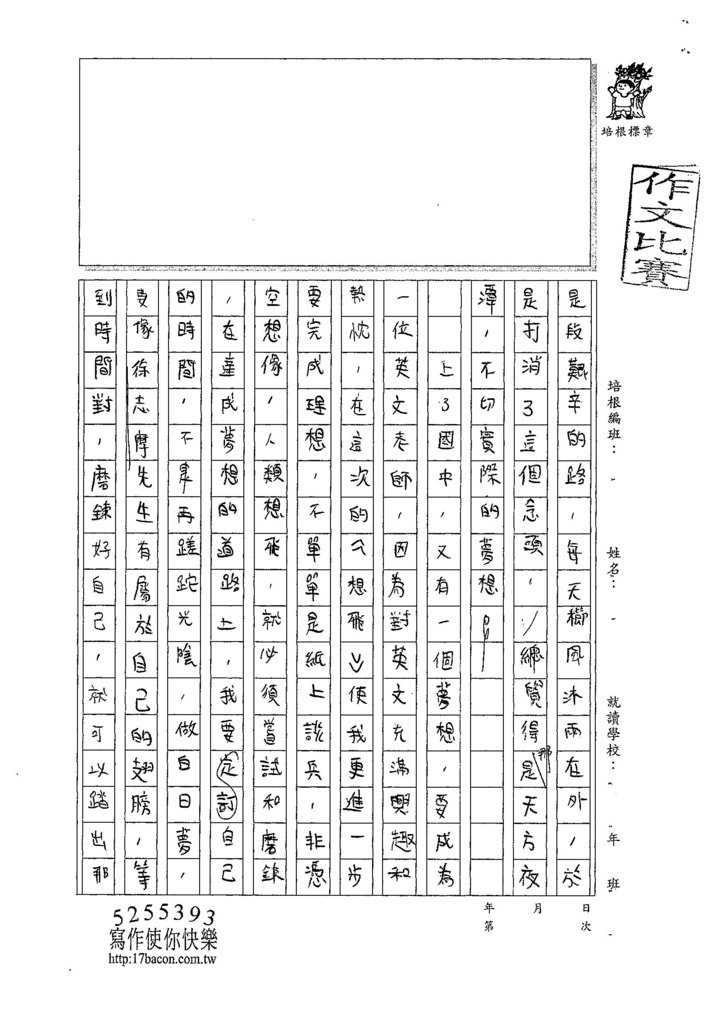 培根標章
作文比賽
培根編班：
姓名：
就讀學校：
年 班
是段艱辛的路，每天櫛風沐雨在外，於
是打消了這個念頭，總覺得那是天方夜
潭，不切實際的夢想。
上了國中，又有一個夢想，要成為
一位英文老師，因為對英文充滿興趣和
熱忱，在這次的〈想飛〉使我更進一步
要完成理想，不單單是紙上談兵，非憑
空想像，人類想飛，就必須嘗試和磨鍊
，在達成夢想的道路上，我要定訂自己
的時間，不要再蹉跎光陰，做白日夢，
要像徐志摩先生有屬於自己的翅膀，等
到時間對，磨鍊好自己，就可以踏出那
年 月 日
第 次
5255393
寫作使你快樂
http:17bacon.com.tw